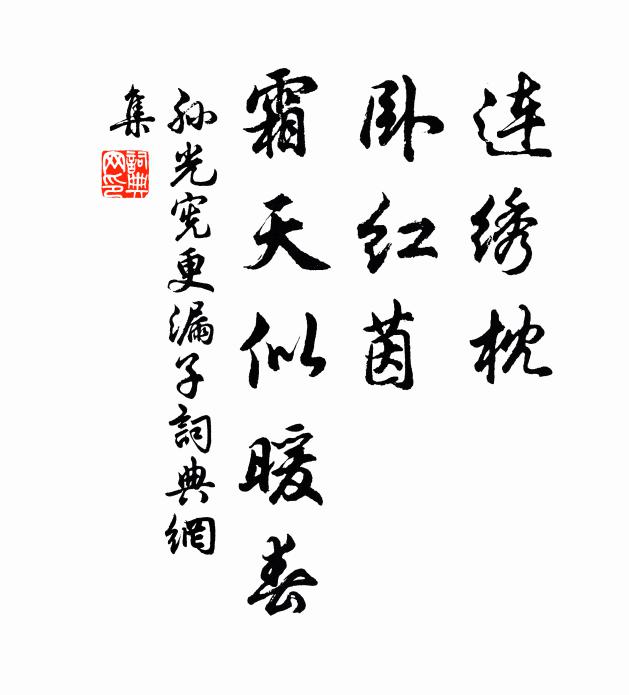 连绣枕
卧红茵
霜天似暖春
孙光宪更漏子詞典網
集
詞典
网印